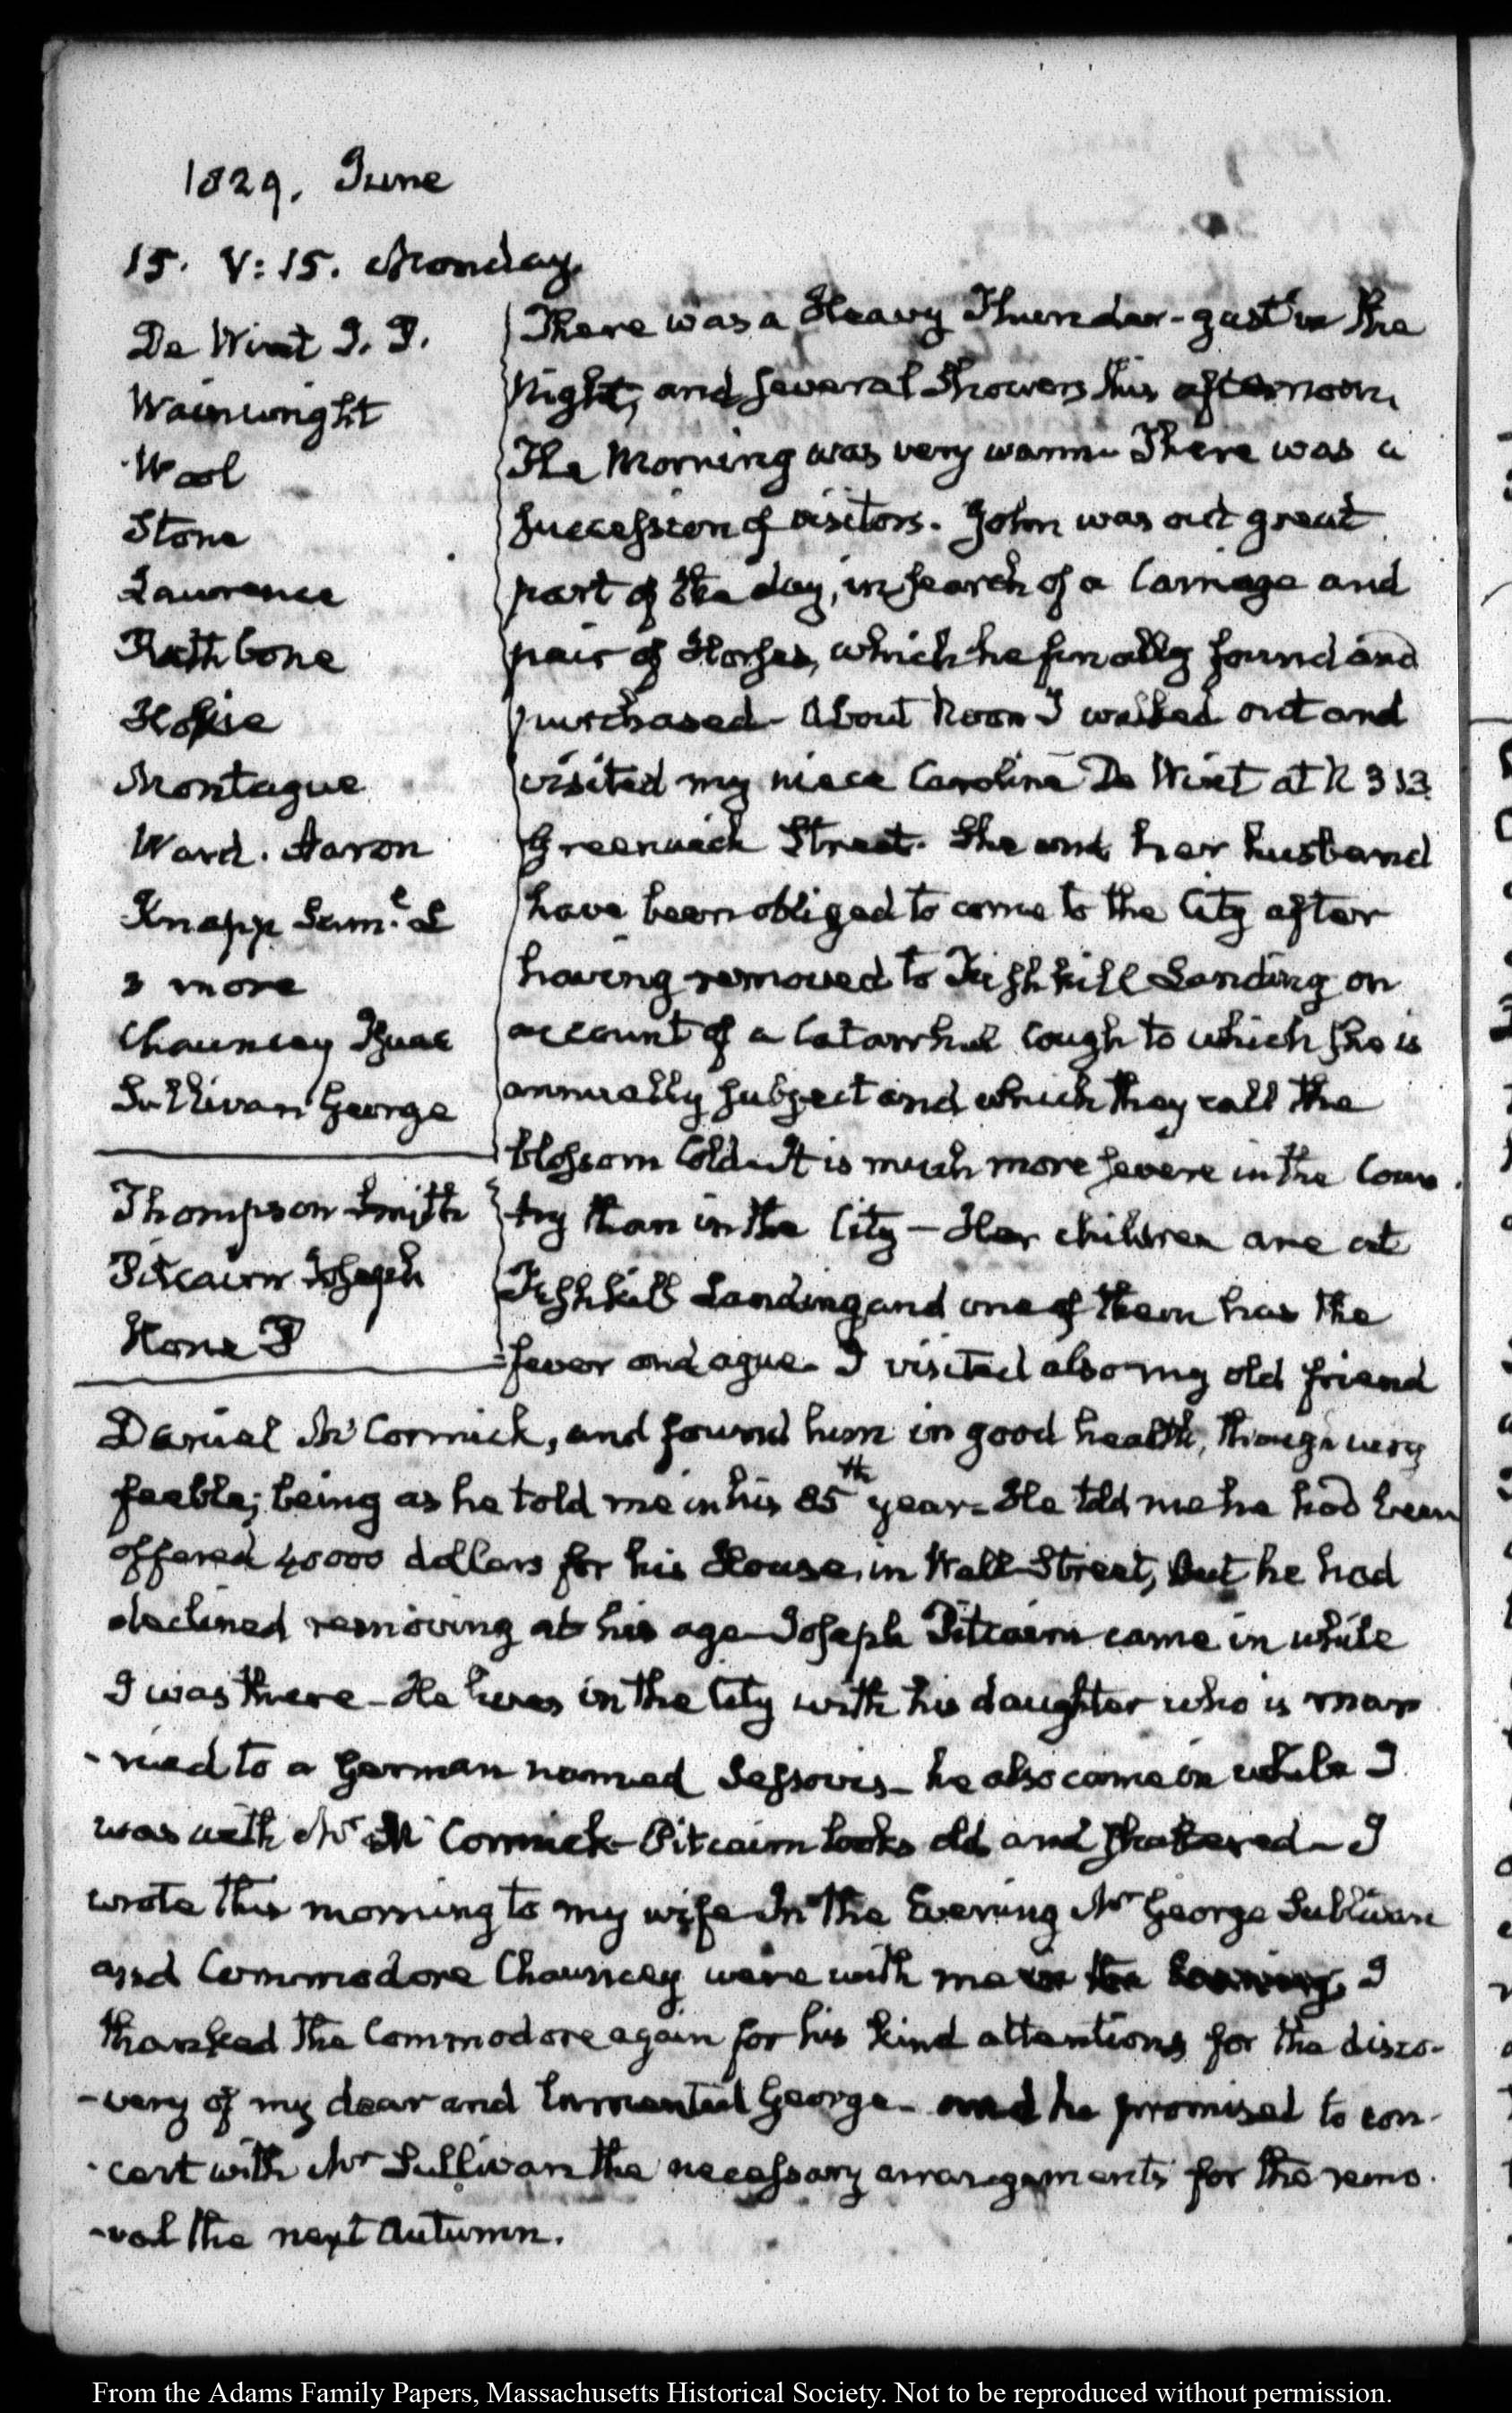 1829. June
15. V:15. Monday.
De Wint J. P.
Wainwright
Wool
Stone
Lawrence
Rathbone
Montague
Ward. Aaron
Knapp Saml. L
3 more
Chauncey Isaac
Sullivan George
Thompson Smith
Pitcairn Joseph
Hone P
There was a Heavy Thunder-gust in the
Night, and several Showers this afternoon.
The Morning was very warm. There was a
succession of visitors. John was out great
part of the day, in search of a Carriage and
pair of Horses, which he finally found and
purchased- About Noon I walked out and
visited my niece Caroline De Wint at N 313
Greenwich Street. She and her husband
have been obliged to come to the City after
having removed to Fishkill Landing on
account of a Catarrhal Cough to which she is
annually subject and which they call the
blossom Cold- It is much more severe in the Coun
try than in the City - Her children are at
Fishkill Landing and one of them has the
fever and ague- I visited also my old friend
Daniel McCormick, and found him in good health, though very
feeble; being as he told me in his 85th year- He told me he had been
offered 40000 dollars for his House in Wall-Street, but he had
declined removing at his age- Joseph Pitcairn came in while
I was there- He lives in the City with his daughter who is mar
-ried to a German named he also came in while I
was with Mr McCormick- Pitcairn looks old and shattered- I
wrote this morning to my wife- In the Evening Mr George Sullivan
and Commodore Chauncey were with me in the Evening. I
thanked the Commodore again for his kind attentions for the disco-
-very of my dear and lamented George- and he promised to con-
-cert with Mr Sullivan the necessary arrangements for the remo-
-val the next Autumn.
From the Adams Family Papers, Massachusetts Historical Society. Not to be reproduced without permission.